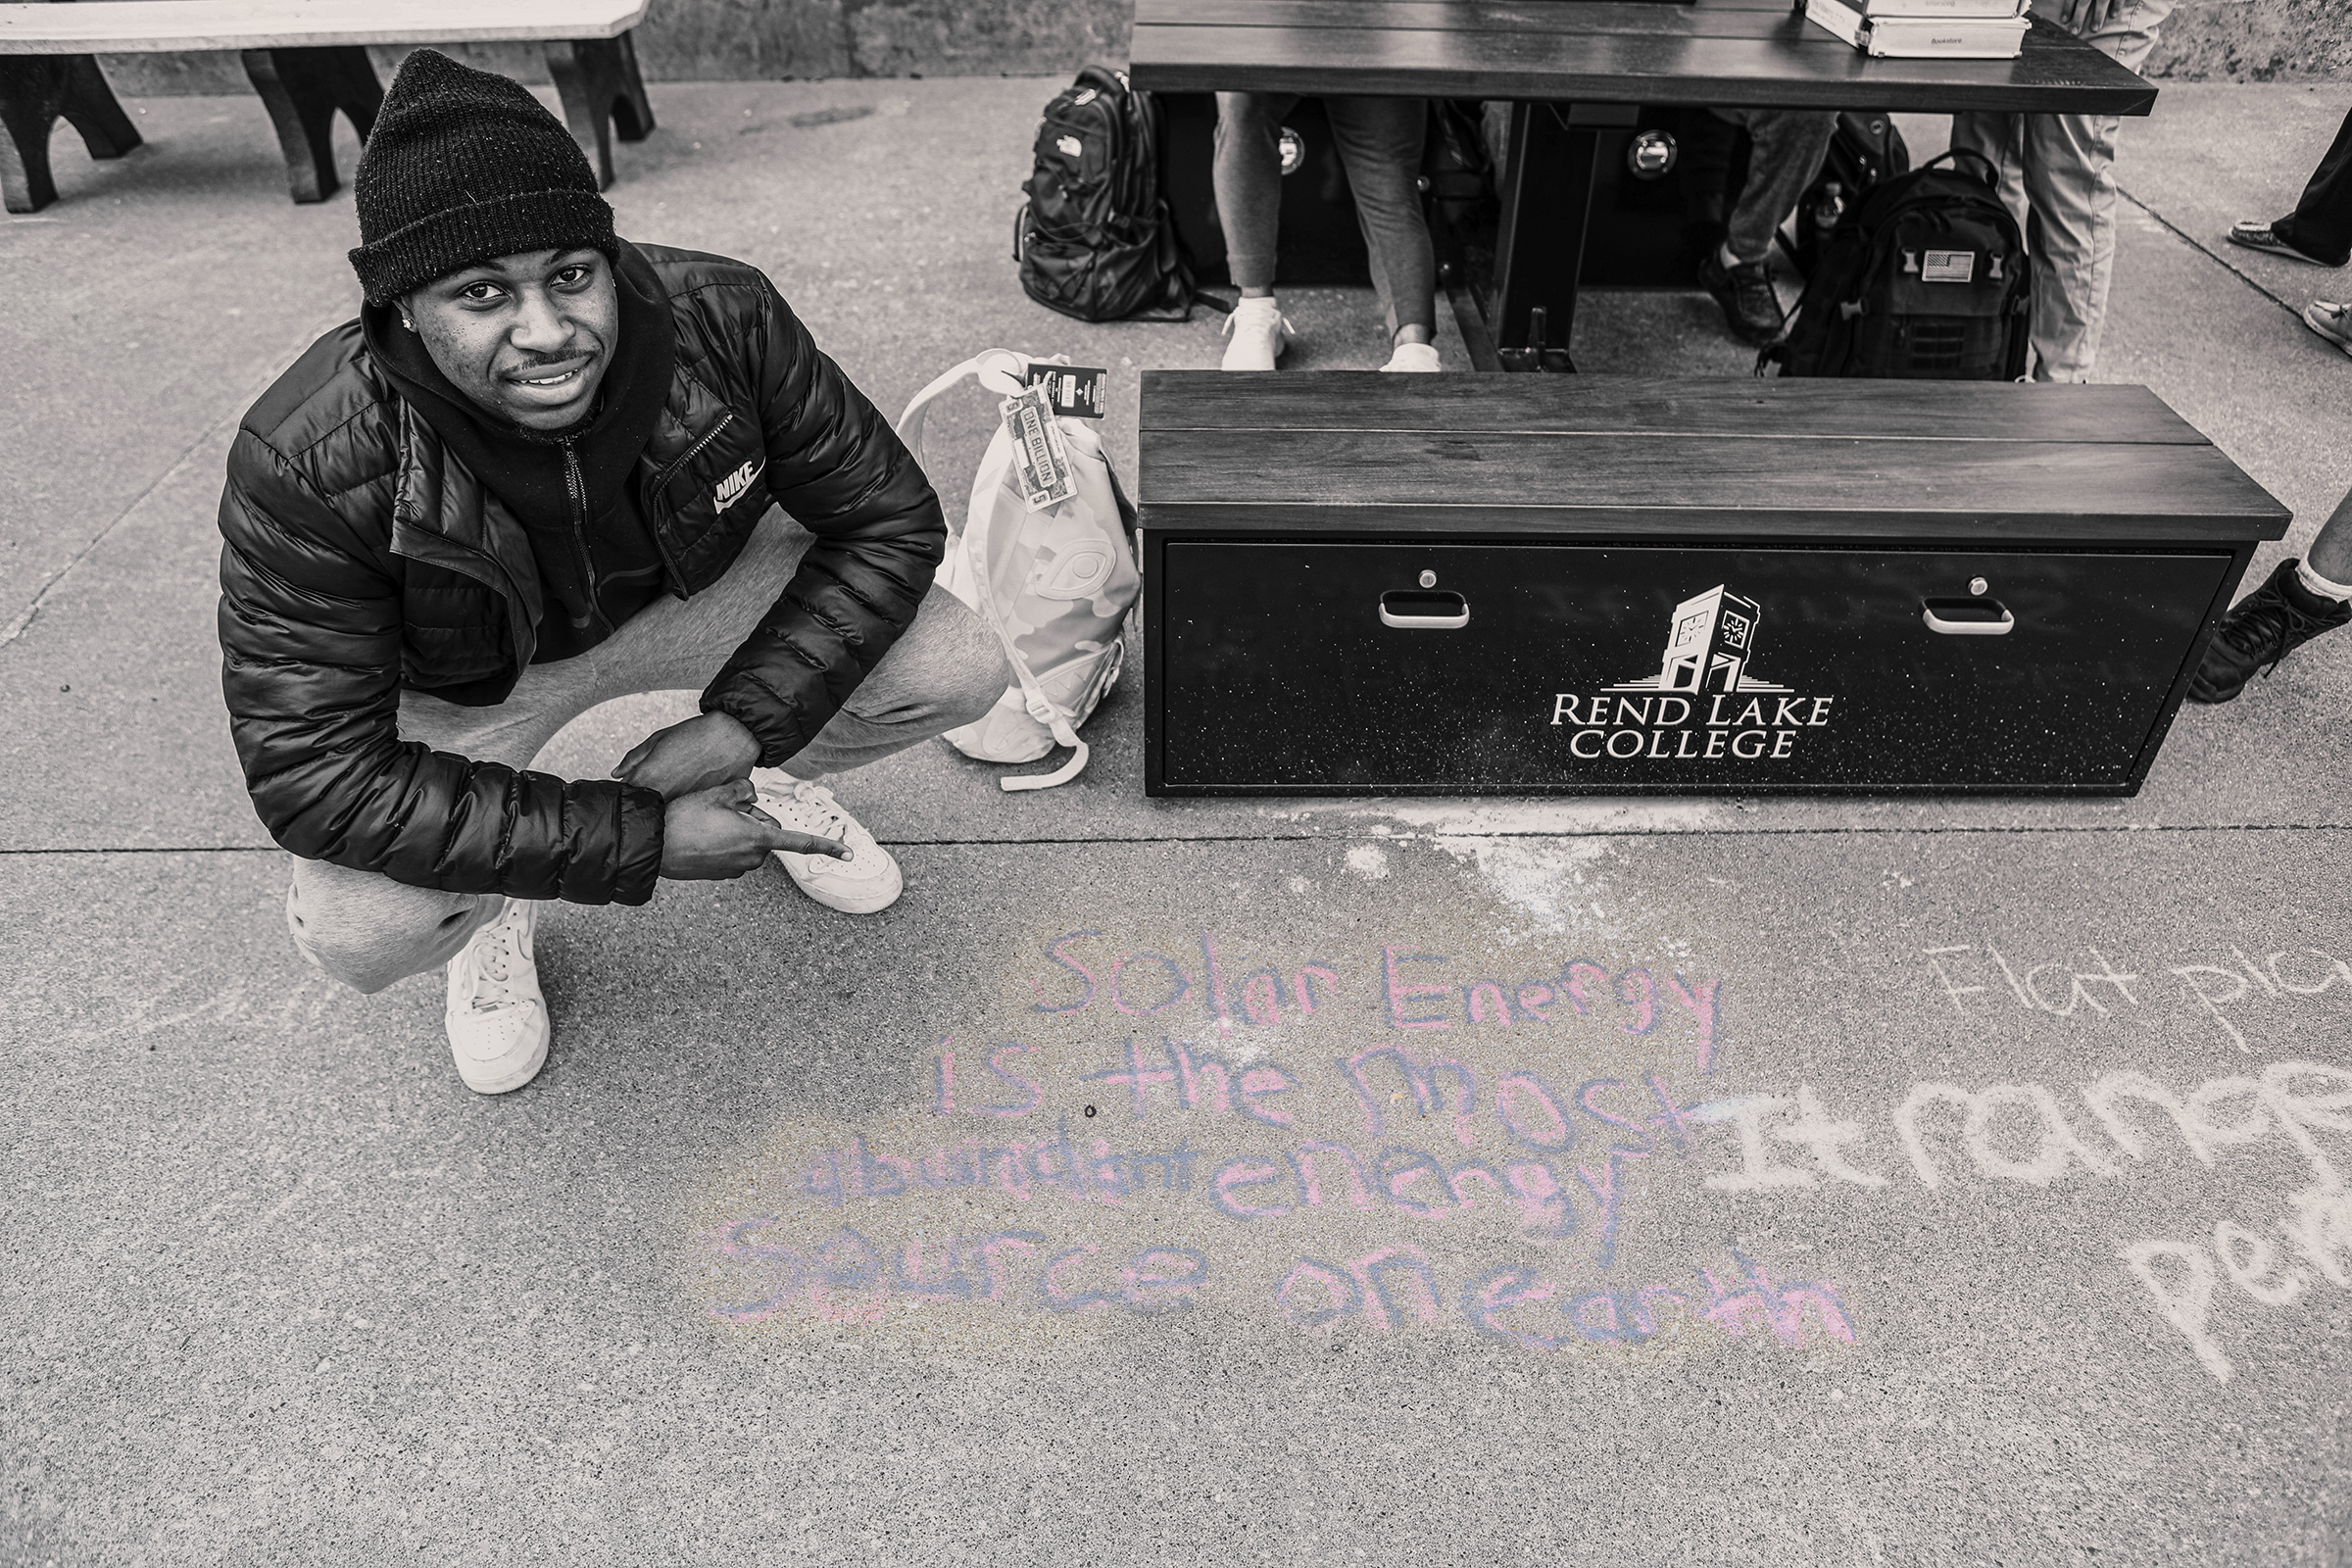 Bookstore
NIKE
ONE BILLION
REND LAKE
COLLEGE
Solar Energy
is the most
abundant energy
Source on earth
Flat pla
It range
per